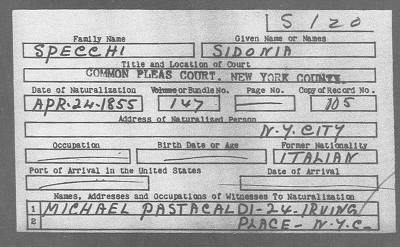 S 120
Family Name Given Name or Names
SPECCHI SIDONIA
Title and Location of Court
COMMON PLEAS COURT. NEW YORK COUNTY.
Date of Naturalization Volume or Bundle No. Page No. Copy of Record No.
APR. 24-1855 147 105
Address of Naturalized Person
N.Y. CITY
Occupation Birth Date or Age Former Nationality
ITALIAN
Port of Arrival in the United States Date of Arrival
Names, Addresses and Occupations of Witnesses To Naturalization
1 MICHAEL PASTACALDI-24-IRVING
2 PLACE-N.Y.C.